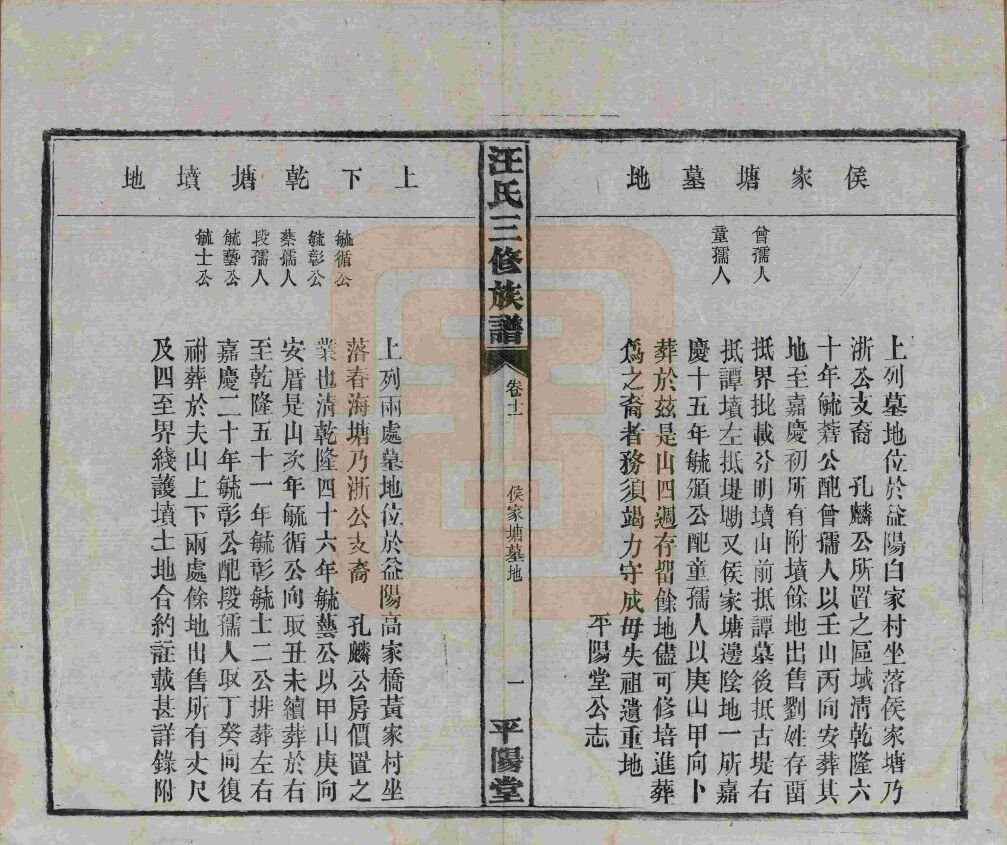 侯家塘墓地
曾孺人
童孺人
上列墓地位於益陽白家村坐落侯家塘乃
浙公支裔 孔麟公所置之區域清乾隆六
十年毓著公配曾孺人以壬山丙向安葬其
地至嘉慶初所有附墳餘地出售劉姓存畱
抵界批載分明墳山前抵譚墓後抵古堤右
抵譚墳左抵堤勘又侯家塘邊陰地一所嘉
慶十五年毓頒公配童孺人以庚山甲向卜
葬於玆是山四週存畱餘地儘可修培進葬
爲之裔者務須竭力守成毋失祖遺重地
平陽堂公志
汪氏三修族譜
卷十一
侯家塘墓地
一
平陽堂
上下乾塘墳地
毓循公
毓彰公
蔡孺人
段孺人
毓藝公
毓士公
上列兩處墓地位於益陽高家橋黃家村坐
落春海塘乃浙公支裔 孔麟公房價置之
業也清乾隆四十六年毓藝公以甲山庚向
安厝是山次年毓循公向取丑未續葬於右
至乾隆五十一年毓彰毓士二公排葬左右
嘉慶二十年毓彰公配段孺人取丁癸向復
祔葬於夫山上下兩處餘地出售所有丈尺
及四至界綫護墳土地合約註載甚詳錄附